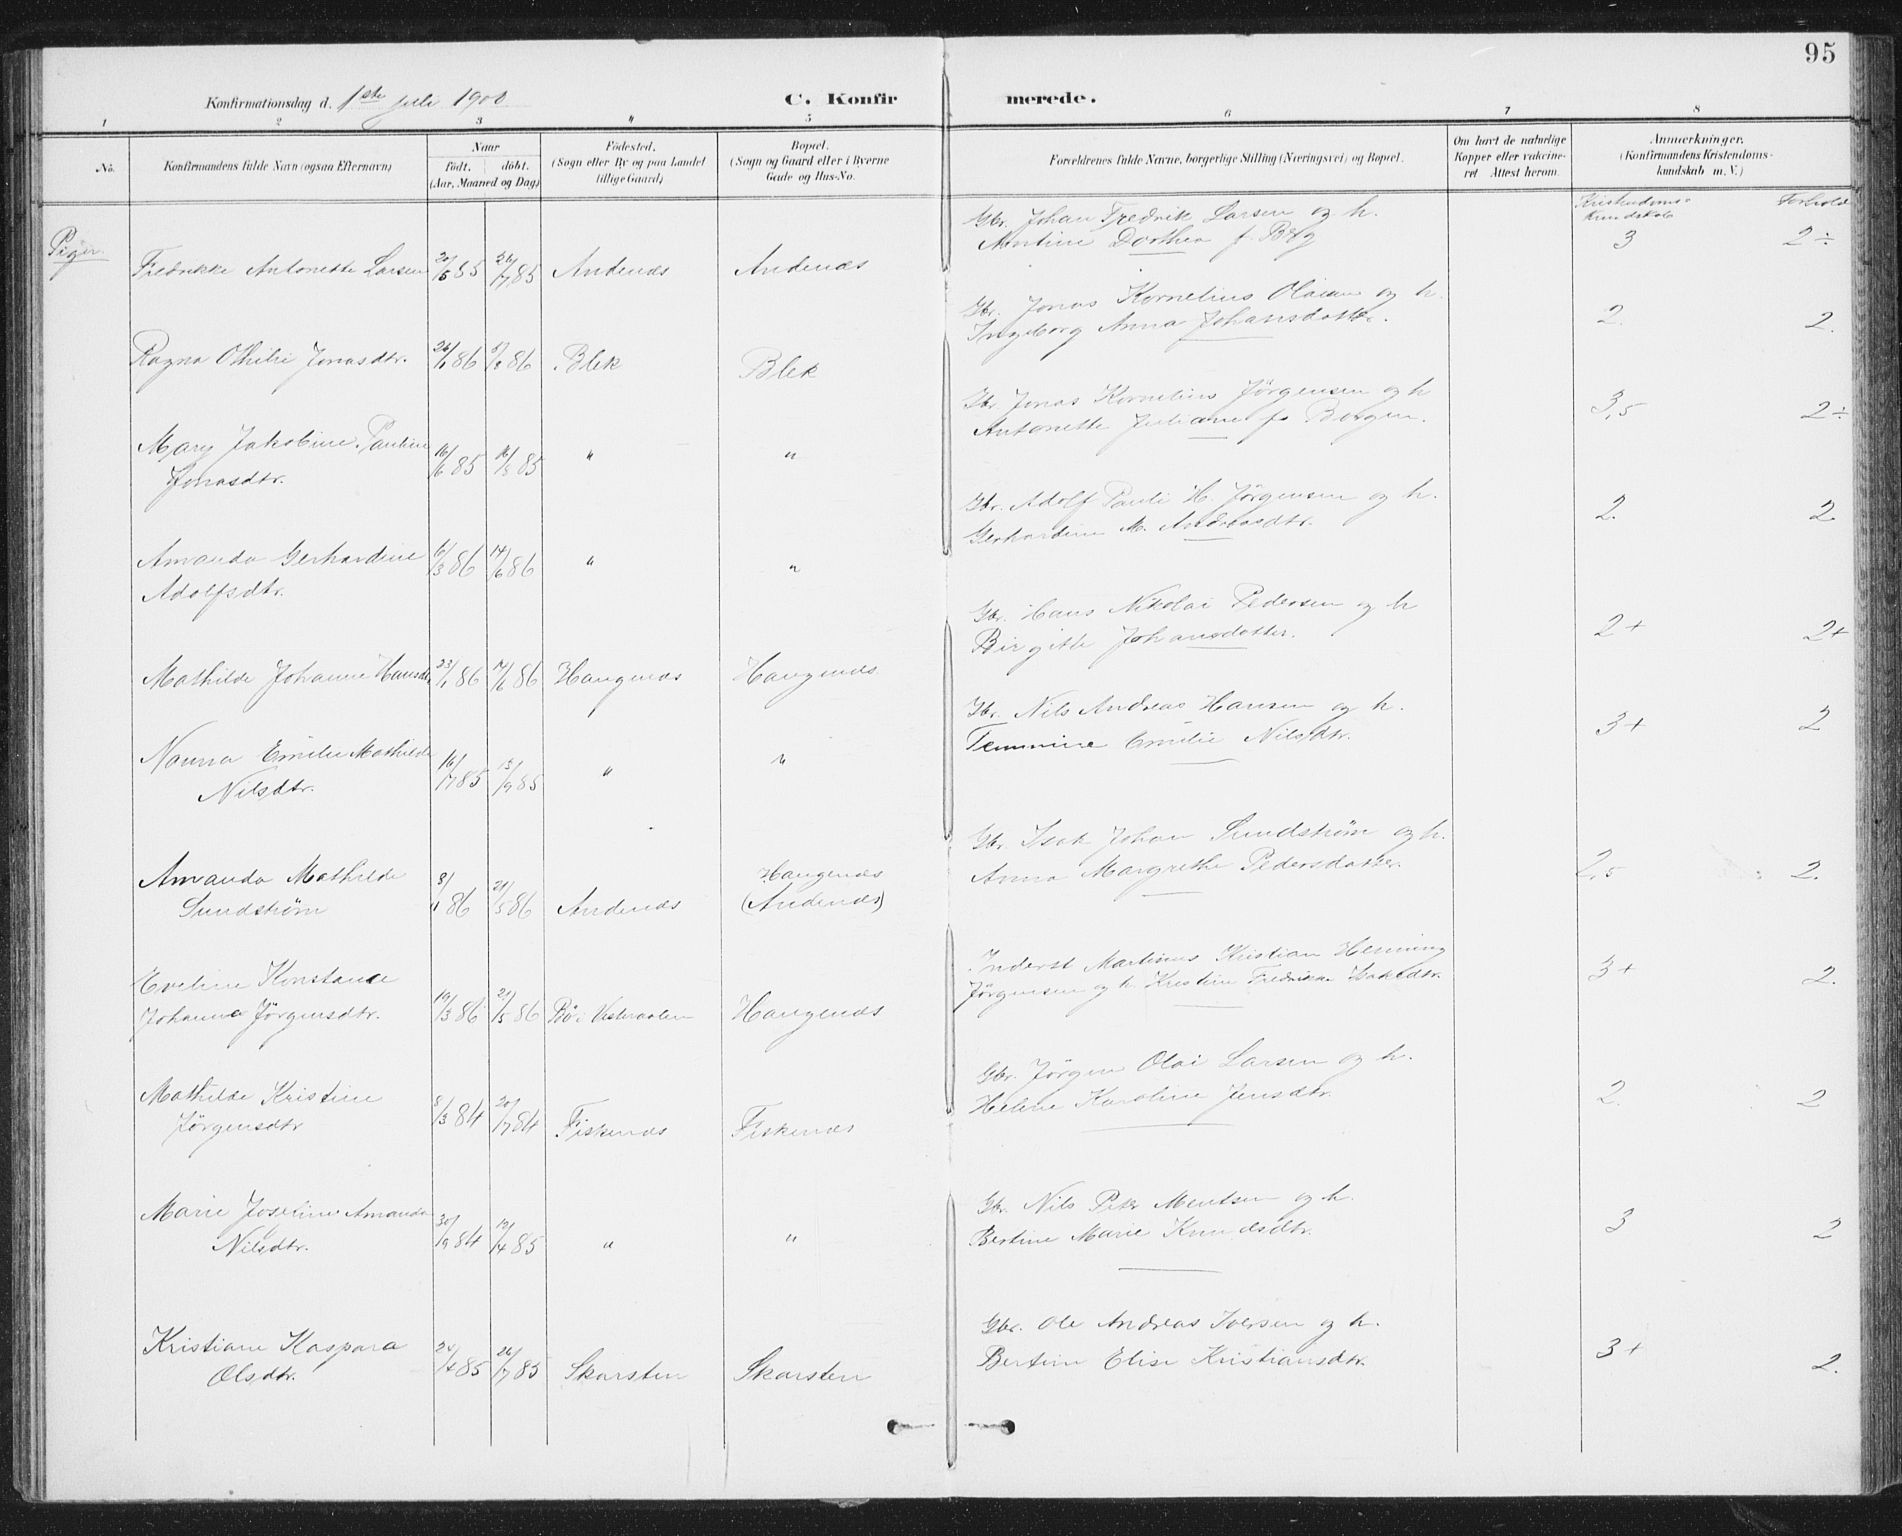 95
Konfirmationsdag d. 1ste juli 1900
C. Konfirmerede.
1 2 3 4 5 6 7 8
No.
Konfirmandens fulde Navn (ogsaa Efternavn)
Naar
Födt. döbt.
(Aar, Maaned og Dag)
Födested.
(Sogn eller By og paa Landet
tillige Gaard)
Bopæl.
(Sogn og Gaard eller i Byerne
Gade og Hus-No.
Forældrenes fulde Navne, borgerlige Stilling (Næringsvei) og Bopæl.
Om havt de naturlige
Kopper eller vakcine-
ret Attest herom.
Anmærkninger.
(Konfirmandens Kristendoms-
kundskab m. V.)
Kristendoms- Forhold
kundskab
Piger.
Gbr. Johan Fredrik Larsen og h.
Martine Dorthea f. Berg
Fredrikke Antonette Larsen 20/5 85 26/7 85 Andenæs Andenæs 3 2÷
Gbr. Jonas Kornelius Olaisen og h.
Ingeborg Anna Johansdatter.
Ragna Othilie Jonasdtr. 26/1 86 Blek Blek 2. 2.
Gbr. Jonas Kornelius Jørgensen og h
Antonette Juliane f. Borgen.
Mary Jakobine Pauline
Jonasdtr. 16/6 85 16/8 85 " " 3,5 2÷
Gbr. Adolf Pauli H. Jørgensen og h.
Gerhardine M. Andreasdtr.
Amanda Gerhardine
Adolfsdtr. 6/3 86 14/6 86 " " 2. 2
Gbr. Hans Nikolai Pedersen og h
Birgitte Johansdatter.
Mathilde Johanne Hansdtr 23/1 86 14/6 86 Haugenæs Haugenæs 2+ 2+
Gbr. Nils Andreas Hansen og h.
Femmine Emilie Nilsdtr.
Nanna Emilie Mathilde
Nilsdtr. 16/7 85 13/9 85 " " 3+ 2
Gbr. Isak Johan Sundstrøm og h.
Anna Margrethe Pedersdatter.
Amanda Mathilde
Sundstrøm 3/1 86 21/5 86 Andenæs Haugenæs
(Andenæs) 2,5 2.
Inderst Martinus Kristian Henning
Jørgensen og h. Kristine Fredrikke Isaksdtr.
Eveline Konstance
Johanna Jörgensdtr. 19/3 86 21/5 86 Bö i Vesteraalen Haugenæs 3+ 2.
Gbr. Jörgen Olai Larsen og h.
Helene Karoline Jensdtr.
Mathilde Kristine
Jörgensdtr 8/3 84 20/7 84 Fiskenæs Fiskenæs 2. 2
Gbr. Nils Peter Mentsen og h.
Bertine Marie Knudsdtr.
Marie Josefine Amanda
Nilsdtr. 30/9 84 19/4 85 " " 3 2
Gbr. Ole Andreas Iversen og h.
Bertine Elise Kristiansdtr.
Kristiane Kaspara
Olsdtr. 25/4 85 26/7 85 Skarsten Skarsten 3+ 2.